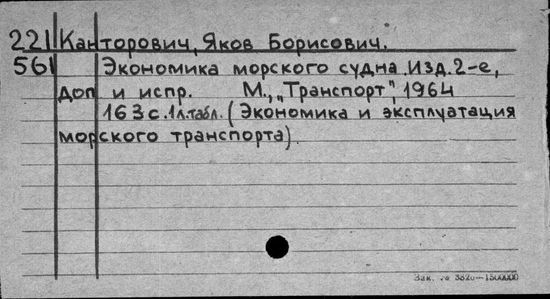 221 Канторович, Яков Борисович.
561 Экономика морского судна. Изд. 2-е,
доп и испр. М., „Транспорт", 1964
163 с. 1 л. табл. (Экономика и эксплуатация
морского транспорта).
Зак. 3820—1500000